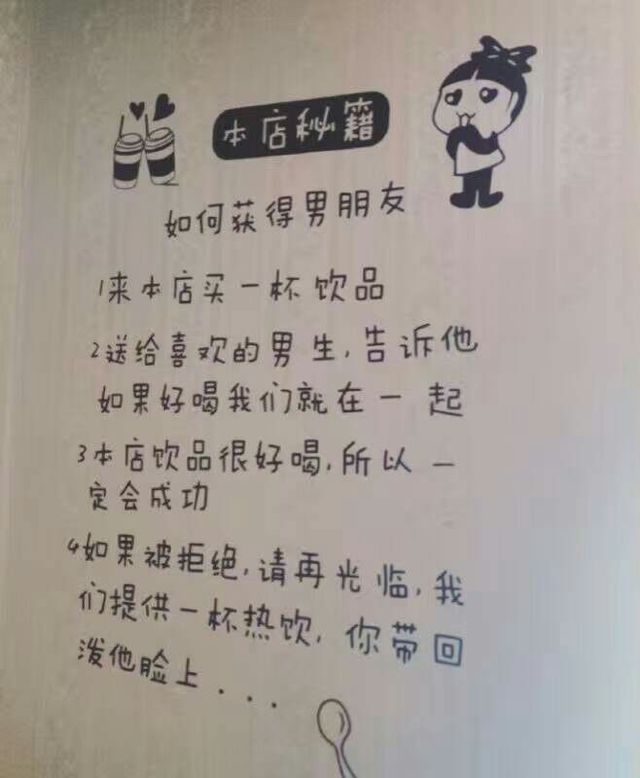 本店秘籍
如何获得男朋友
1来本店买一杯饮品
2送给喜欢的男生,告诉他
如果好喝我们就在一起
3本店饮品很好喝,所以一
定会成功
4如果被拒绝,请再光临,我
们提供一杯热饮,你带回
泼他脸上....